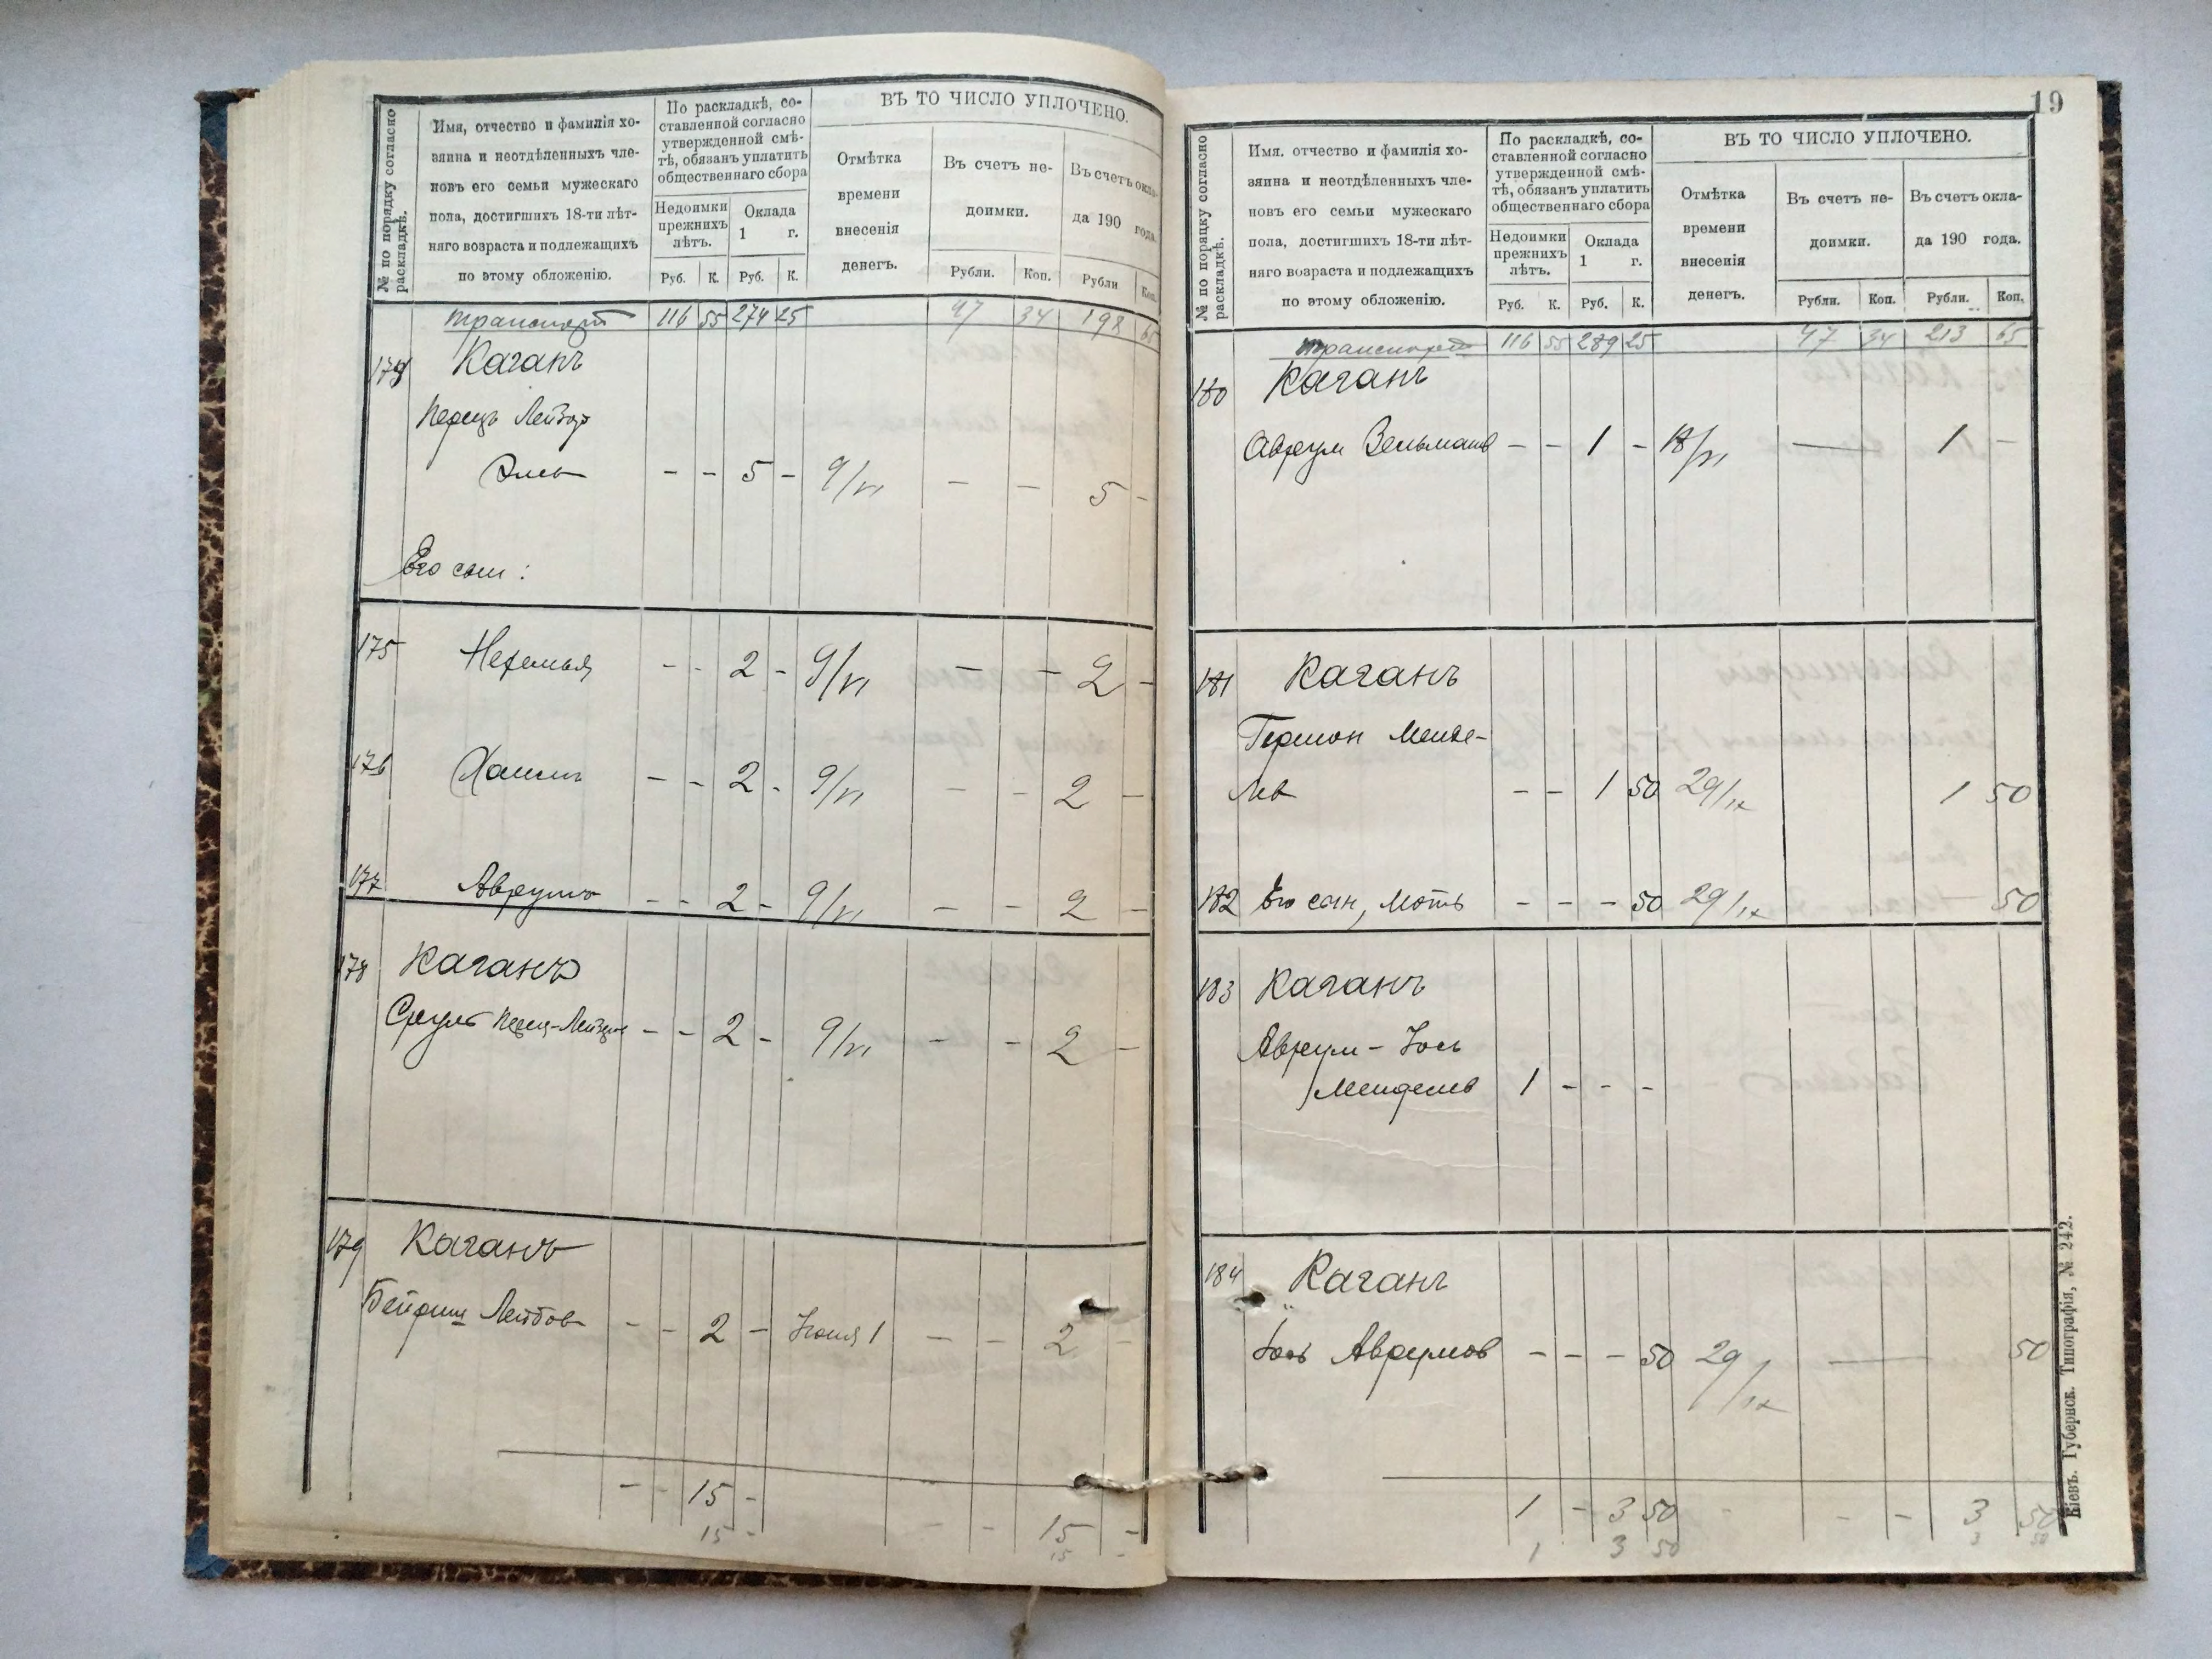 № по порядку согласно раскладкѣ.
Имя, отчество и фамилія хо-
зяина и неотдѣленныхъ чле-
новъ его семьи мужескаго
пола, достигшихъ 18-ти лѣт-
няго возраста и подлежащихъ
по этому обложенію.
По раскладкѣ, со-
ставленной согласно
утвержденной смѣ-
тѣ, обязанъ уплатить
общественнаго сбора
Недоимки
прежнихъ
лѣтъ.
Оклада
1 г.
Руб. К. Руб. К.
ВЪ ТО ЧИСЛО УПЛОЧЕНО.
Отмѣтка
времени
внесенія
денегъ.
Въ счетъ не-
доимки.
Рубли. Коп.
Въ счетъ окла-
да 190 года.
Рубли Коп.
транспорт 116 55 274 25 47 34 198 65
174 Каганъ
Перецъ Лейзор
Эль - - 5 - 9/VI - - 5 -
Его сын :
175 Нехемья - - 2 - 9/VI - - 2 -
176 Хаимъ - - 2 - 9/VI - - 2 -
177 Аврумъ - - 2 - 9/VI - - 2 -
178 Каганъ
Сруль Перец-Лейзоров - - 2 - 9/VI - - 2 -
179 Каганъ
Бейриш Лейбов - - 2 - Июня 1 - - 2 -
- - 15 - - - 15 -
15 - 15 -
19
№ по порядку согласно раскладкѣ.
Имя, отчество и фамилія хо-
зяина и неотдѣленныхъ чле-
новъ его семьи мужескаго
пола, достигшихъ 18-ти лѣт-
няго возраста и подлежащихъ
по этому обложенію.
По раскладкѣ, со-
ставленной согласно
утвержденной смѣ-
тѣ, обязанъ уплатить
общественнаго сбора
Недоимки
прежнихъ
лѣтъ.
Оклада
1 г.
Руб. К. Руб. К.
ВЪ ТО ЧИСЛО УПЛОЧЕНО.
Отмѣтка
времени
внесенія
денегъ.
Въ счетъ не-
доимки.
Рубли. Коп.
Въ счетъ окла-
да 190 года.
Рубли. Коп.
транспорт 116 55 289 25 47 34 213 65
180 Каганъ
Аврум Зельманов - - 1 - 18/VI — 1 -
181 Каганъ
Гершон Менде-
лев - - 1 50 29/IX 1 50
182 Его сын, Моть - - - 50 29/IX 50
183 Каганъ
Аврум - Іось
Менделев 1 - - -
184 Каганъ
Іось Аврумов - - - 50 29/IX — 50
1 - 3 50 - - - 3 50
1 3 50 3 50
Кіевъ. Губернск. Типографія, № 242.